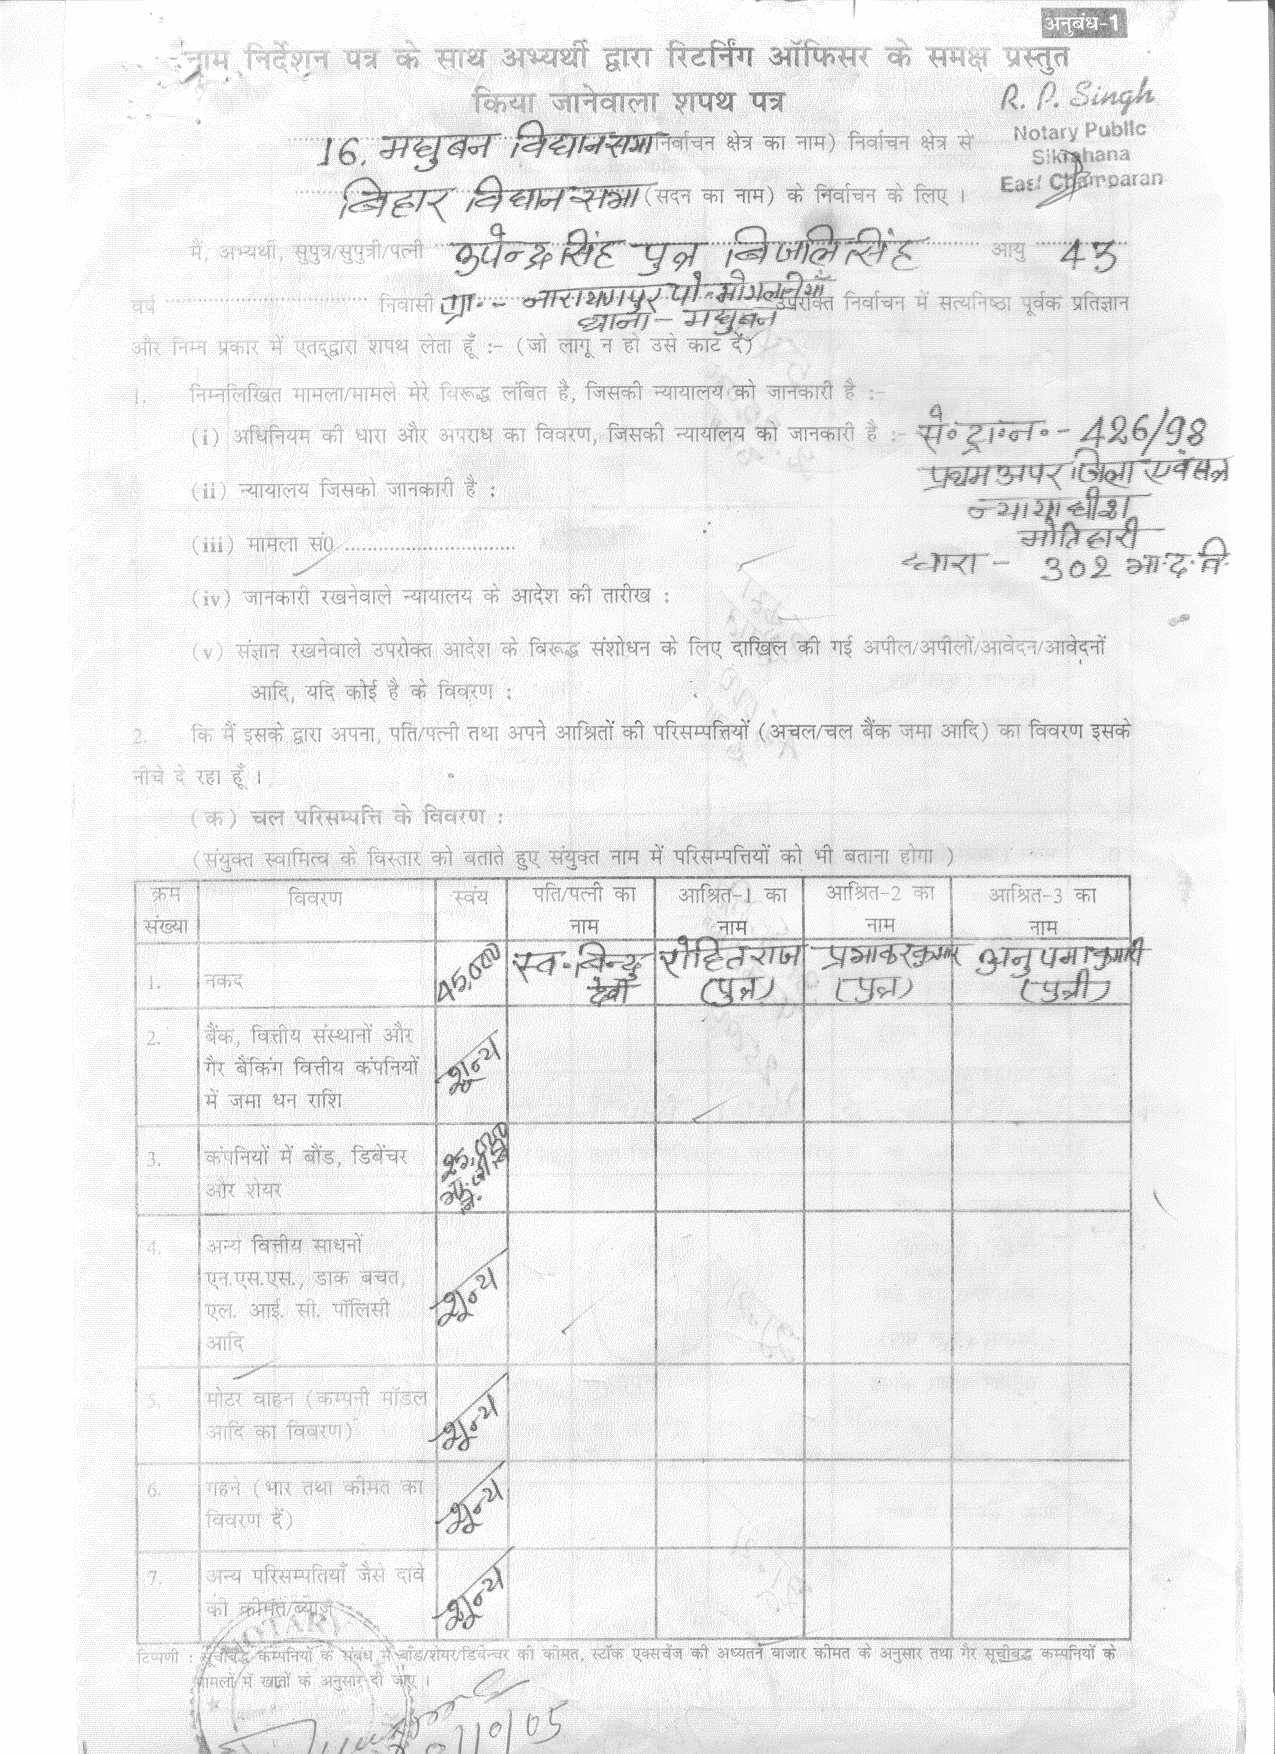 अनुबंध-1
नाम निर्देशन पत्र के साथ अभ्यर्थी द्वारा रिटर्निंग ऑफिसर के समक्ष प्रस्तुत
किया जानेवाला शपथ पत्र
R. P. Singh
Notary Public
Sikrahana
East Champaran
16. मधुबन विधानसभा निर्वाचन क्षेत्र का नाम) निर्वाचन क्षेत्र से
बिहार विधान सभा (सदन का नाम) के निर्वाचन के लिए ।
मैं, अभ्यर्थी, सुपुत्र/सुपुत्री/पत्नी उपेन्द्र सिंह पुत्र बिजलि सिंह आयु 43
वर्ष निवासी ग्रा०- नारायणपुर पो- उपरोक्त निर्वाचन में सत्यनिष्ठा पूर्वक प्रतिज्ञान
थाना - मधुबन
और निम्न प्रकार में एतद्द्वारा शपथ लेता हूँ :- (जो लागू न हो उसे काट दें)
1. निम्नलिखित मामला/मामले मेरे विरूद्ध लंबित है, जिसकी न्यायालय को जानकारी है :-
(i) अधिनियम की धारा और अपराध का विवरण, जिसकी न्यायालय को जानकारी है :- से० ट्रा० न०- 426/98
प्रथम अपर जिला एवं सत्र
(ii) न्यायालय जिसको जानकारी है :
न्यायाधीश
मोतिहारी
(iii) मामला सं0 ..............................
धारा - 302 भा.द.वि.
(iv) जानकारी रखनेवाले न्यायालय के आदेश की तारीख :
(v) संज्ञान रखनेवाले उपरोक्त आदेश के विरूद्ध संशोधन के लिए दाखिल की गई अपील/अपीलों/आवेदन/आवेदनों
आदि, यदि कोई है के विवरण :
2. कि मैं इसके द्वारा अपना, पति/पत्नी तथा अपने आश्रितों की परिसम्पत्तियों (अचल/चल बैंक जमा आदि) का विवरण इसके
नीचे दे रहा हूँ ।
(क) चल परिसम्पत्ति के विवरण :
(संयुक्त स्वामित्व के विस्तार को बताते हुए संयुक्त नाम में परिसम्पत्तियों को भी बताना होगा )
क्रम संख्या विवरण स्वंय पति/पत्नी का नाम आश्रित-1 का नाम आश्रित-2 का नाम आश्रित-3 का नाम
1. नकद 45,000 स्व० बिन्दु देवी रोहित राज (पुत्र) प्रभाकर कुमार (पुत्र) अनुपमा कुमारी (पुत्री)
2. बैंक, वित्तीय संस्थानों और
गैर बैंकिंग वित्तीय कंपनियों
में जमा धन राशि
शून्य
3. कंपनियों में बौंड, डिबेंचर
और शेयर
4. अन्य वित्तीय साधनों
एन.एस.एस., डाक बचत,
एल. आई. सी. पॉलिसी
आदि
शून्य
5. मोटर वाहन (कम्पनी मॉडल
आदि का विवरण)
शून्य
6. गहने (भार तथा कीमत का
विवरण दें)
शून्य
7. अन्य परिसम्पतियाँ जैसे दावे
की कीमत/ब्याज
शून्य
टिप्पणी : सूचीबद्ध कम्पनियों के संबंध में बॉंड/शेयर/डिबेन्चर की कीमत, स्टॉक एक्सचेंज की अध्यतन बाजार कीमत के अनुसार तथा गैर सूचीबद्ध कम्पनियों के
मामलों में खातों के अनुसार दी जाए ।
NOTARY